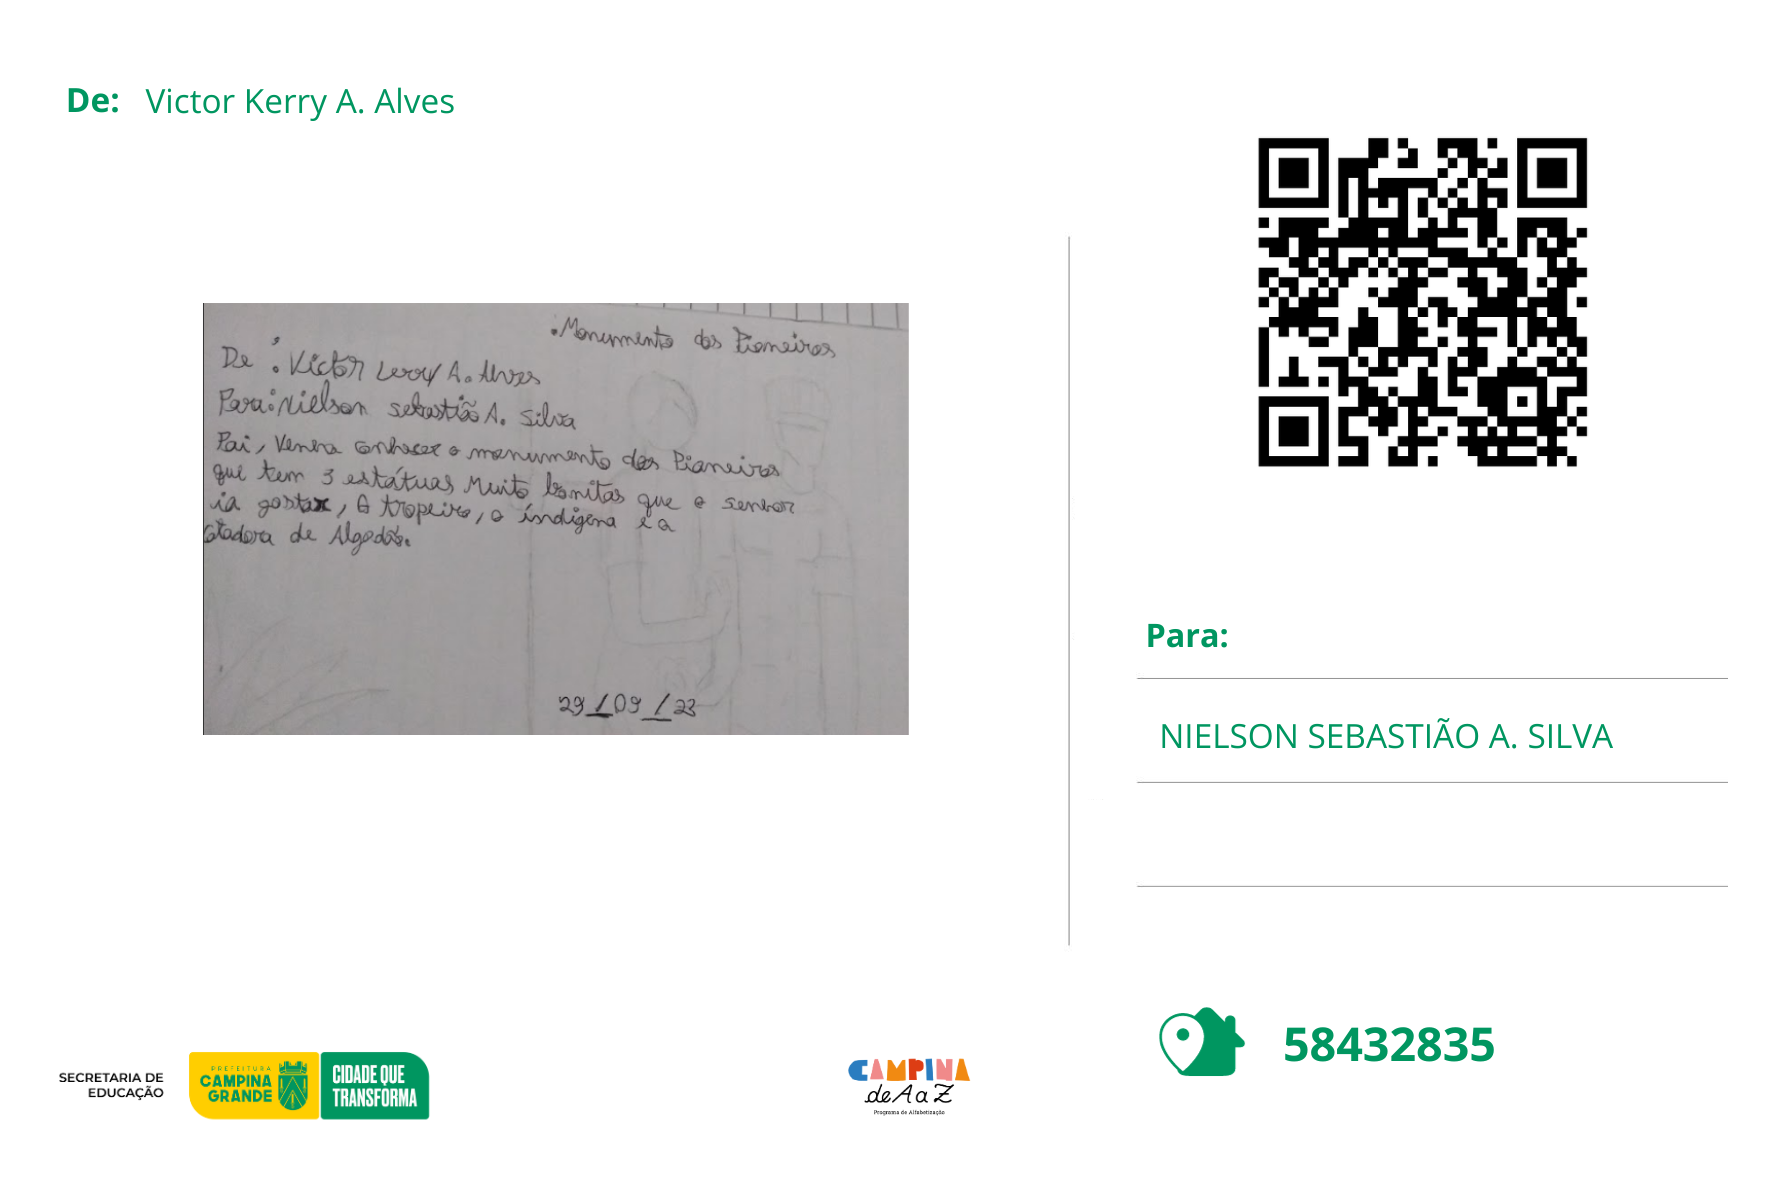 De: Victor Kerry A. Alves
.Monumento dos Pioneiros
De : Victor A. Alves
Para: Nielson sebastião A. Silva
Pai, Venha conhecer o monumento dos Pioneiros
que tem 3 estátuas Muito bonitas que o senhor
ia gostar, O tropeiro, o indígena e a
catadora de Algodão.
29/09/23
Para:
NIELSON SEBASTIÃO A. SILVA
58432835
SECRETARIA DE
EDUCAÇÃO
PREFEITURA
CAMPINA
GRANDE
CIDADE QUE
TRANSFORMA
CAMPINA
de A a Z
Programa de Alfabetização